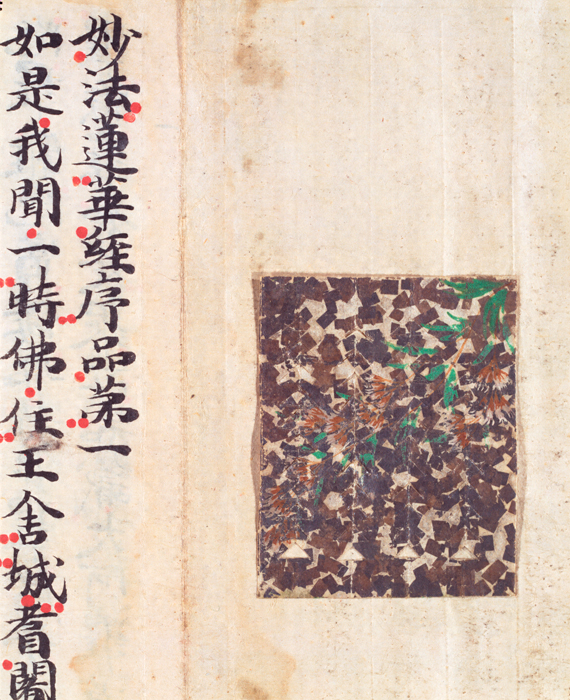 妙法蓮華経序品第一
如是我聞一時佛住王舎城耆闍